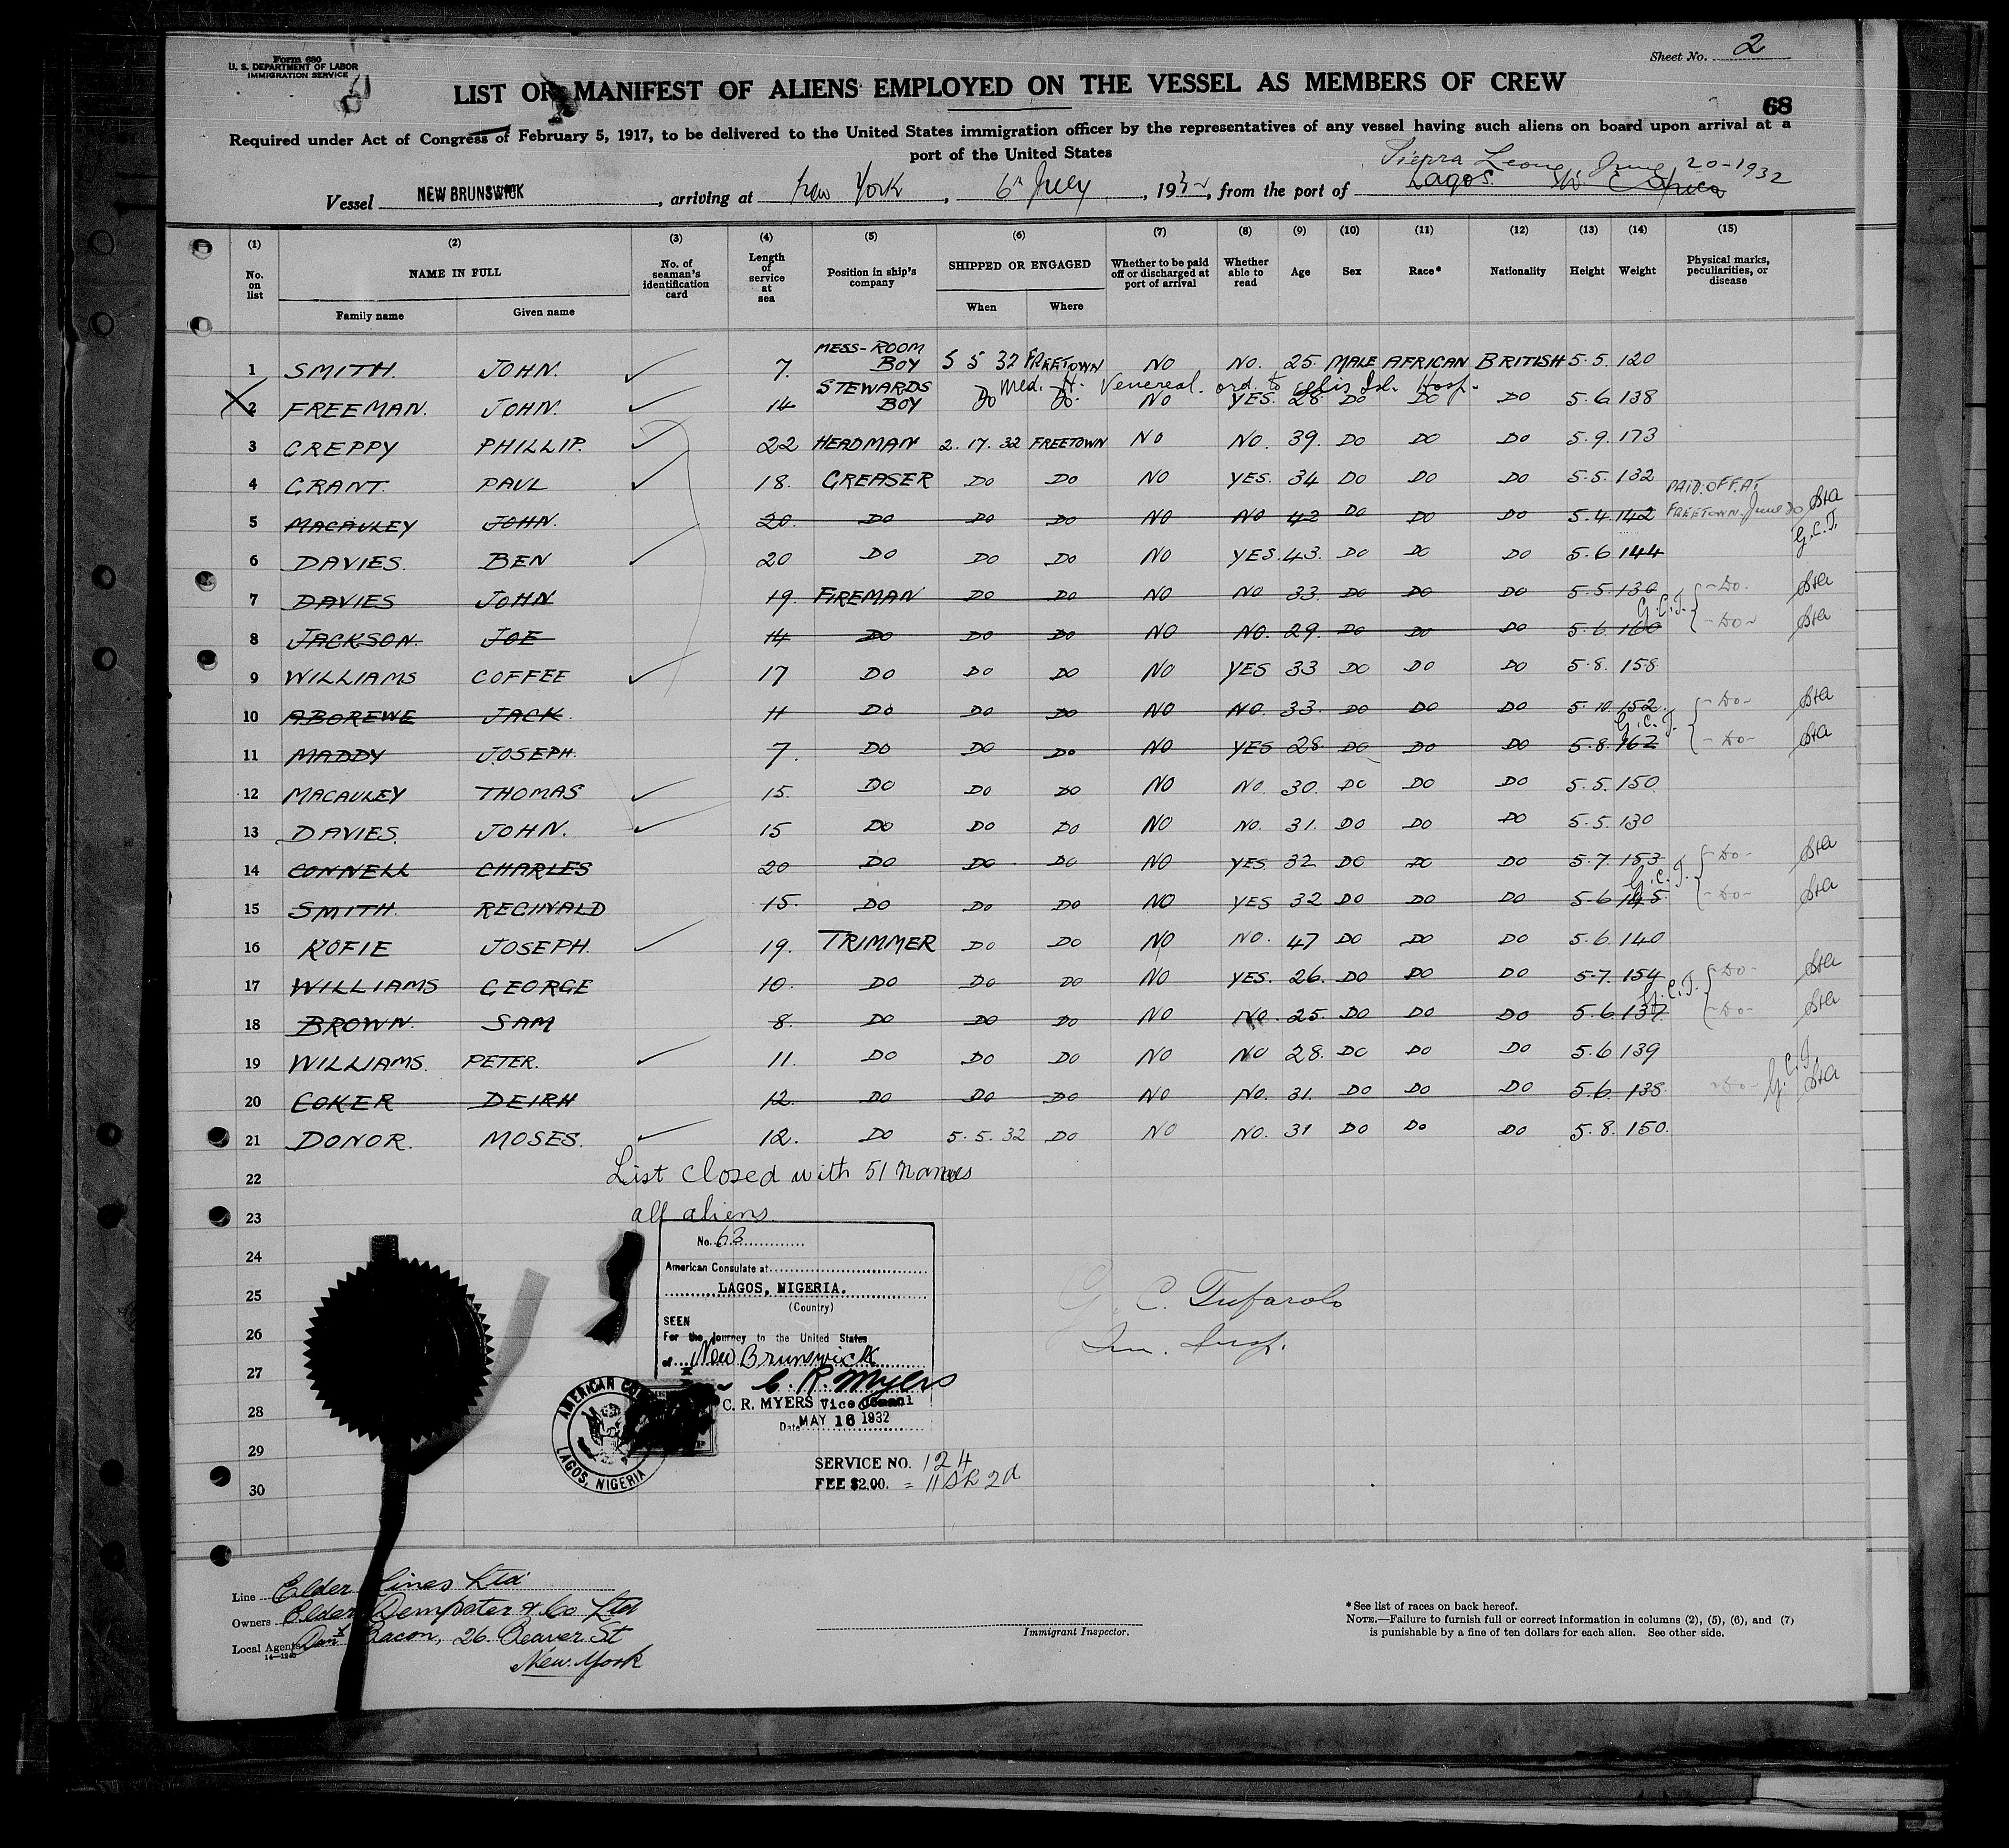 Form 680
U. S. DEPARTMENT OF LABOR
IMMIGRATION SERVICE
Sheet No. 2
LIST OR MANIFEST OF ALIENS EMPLOYED ON THE VESSEL AS MEMBERS OF CREW
68
Required under Act of Congress of February 5, 1917, to be delivered to the United States immigration officer by the representatives of any vessel having such aliens on board upon arrival at a
port of the United States
Sierra Leone June 20-1932
Vessel NEW BRUNSWICK, arriving at New York, 6th July, 1932, from the port of Lagos. W. C Africa
(1) (2) (3) (4) (5) (6) (7) (8) (9) (10) (11) (12) (13) (14) (15)
No. on list NAME IN FULL No. of seaman's identification card Length of service at sea Position in ship's company SHIPPED OR ENGAGED Whether to be paid off or discharged at port of arrival Whether able to read Age Sex Race* Nationality Height Weight Physical marks, peculiarities, or disease
Family name Given name When Where
1 SMITH. JOHN. 7. MESS-ROOM BOY 5 5 32 FREETOWN NO NO. 25. MALE AFRICAN BRITISH 5.5. 120
Med. H. Venereal. ord. to Ellis Isl. Hosp.
2 FREEMAN. JOHN. 14 STEWARDS BOY DO DO NO YES. 28. DO DO DO 5.6 138
3 CREPPY PHILLIP. 22 HEADMAN 2.17.32 FREETOWN NO NO. 39. DO DO DO 5.9. 173
4 GRANT. PAUL 18. GREASER DO DO NO YES. 34 DO DO DO 5.5. 132
PAID.OFF.AT
5 MACAULEY JOHN. 20. DO DO DO NO NO 42 DO DO DO 5.4. 142 FREETOWN. June 20
G.C.T.
6 DAVIES. BEN 20 DO DO DO NO YES. 43. DO DO DO 5.6 144
7 DAVIES JOHN 19. FIREMAN DO DO NO NO 33. DO DO DO 5.5. 130 G.C.T. -Do-
8 JACKSON. JOE 14 DO DO DO NO NO. 29. DO DO DO 5.6. 160 -Do-
9 WILLIAMS COFFEE 17 DO DO DO NO YES 33 DO DO DO 5.8. 158.
10 ABOREWE JACK. 11 DO DO DO NO NO. 33. DO DO DO 5.10. 152. G.C.T. -Do-
11 MADDY JOSEPH. 7. DO DO DO NO YES 28. DO DO DO 5.8. 162 -Do-
12 MACAULEY THOMAS 15. DO DO DO NO NO. 30. DO DO DO 5.5. 150.
13 DAVIES. JOHN. 15 DO DO DO NO NO. 31. DO DO DO 5.5. 130
14 CONNELL CHARLES 20 DO DO DO NO YES 32 DO DO DO 5.7. 153 G.C.T. -Do-
15 SMITH. REGINALD 15. DO DO DO NO YES 32 DO DO DO 5.6 145. -Do-
16 KOFIE JOSEPH. 19. TRIMMER DO DO NO NO. 47 DO DO DO 5.6. 140
17 WILLIAMS GEORGE 10. DO DO DO NO YES. 26. DO DO DO 5.7. 154 G.C.T. -Do-
18 BROWN. SAM 8. DO DO DO NO NO. 25. DO DO DO 5.6. 137 -Do-
19 WILLIAMS. PETER. 11. DO DO DO NO NO 28. DO DO DO 5.6 139
20 COKER DEIRH 12. DO DO DO NO NO. 31. DO DO DO 5.6. 138. -Do- G.C.T.
21 DONOR. MOSES. 12. DO 5.5.32 DO NO NO. 31 DO DO DO 5.8. 150.
22 List closed with 51 names
23 all aliens.
24 No. 63
American Consulate at
25 LAGOS, NIGERIA.
(Country)
G. C. Tufarolo
SEEN
26 For the journey to the United States
Im. Insp.
of New Brunswick
27 C. R. Myers
28 C. R. MYERS Vice Consul
Date MAY 16 1932
AMERICAN
LAGOS, NIGERIA
29 SERVICE NO. 124
30 FEE $2.00. = 11Sh 2d
Line Elder Lines Ltd
Owners Elder Dempster & Co Ltd
Local Agents Danl Bacon, 26. Beaver St
14-1240
New York
Immigrant Inspector.
*See list of races on back hereof.
NOTE.—Failure to furnish full or correct information in columns (2), (5), (6), and (7)
is punishable by a fine of ten dollars for each alien. See other side.